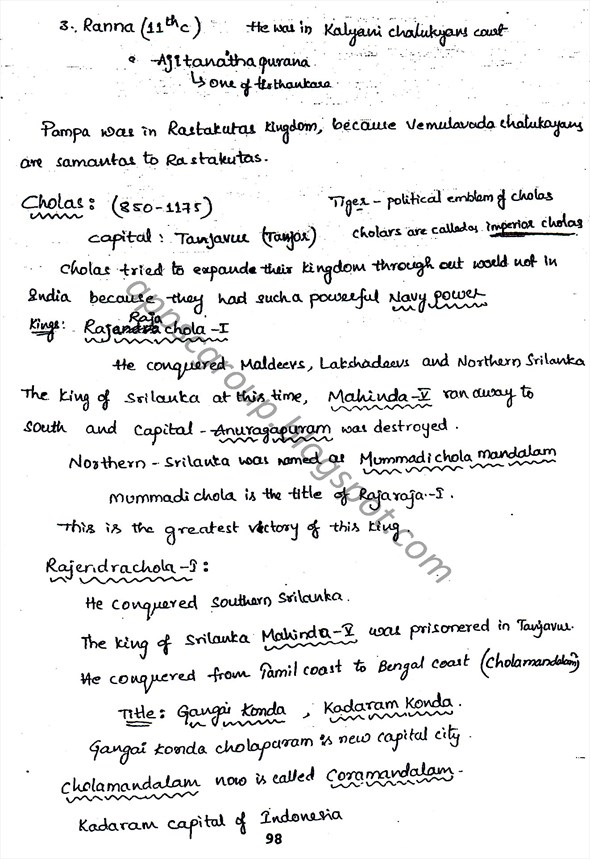 3. Ranna (11th c) He was in Kalyani chalukyans court
• Ajitanathapurana
↳ one of tirthankara
Pampa was in Rastakutas kingdom, because Vemulavada chalukayans
are samantas to Rastakutas.
Cholas: (850-1175) Tiger - political emblem of cholas
capital: Tanjavur (Tanjor) cholars are called as imperior cholas
cholas tried to expande their kingdom through out world not in
India because they had such a powerful Navy power
Kings: Rajaraja chola-I
He conquered Maldeevs, Lakshadeevs and Northern Srilanka
The king of Srilanka at this time, Mahinda-V ran away to
south and capital - Anuragapuram was destroyed.
Northern - Srilanka was named as Mummadi chola mandalam
mummadi chola is the title of Rajaraja-I.
This is the greatest victory of this king.
Rajendrachola-I:
He conquered southern Srilanka.
The king of Srilanka Mahinda-V was prisonered in Tanjavur.
He conquered from Tamil coast to Bengal coast (Cholamandalam)
Title: Gangai konda, Kadaram Konda.
Gangai konda cholapuram is new capital city.
Cholamandalam now is called Coramandalam.
Kadaram capital of Indonesia
98
appscgroup.blogspot.com